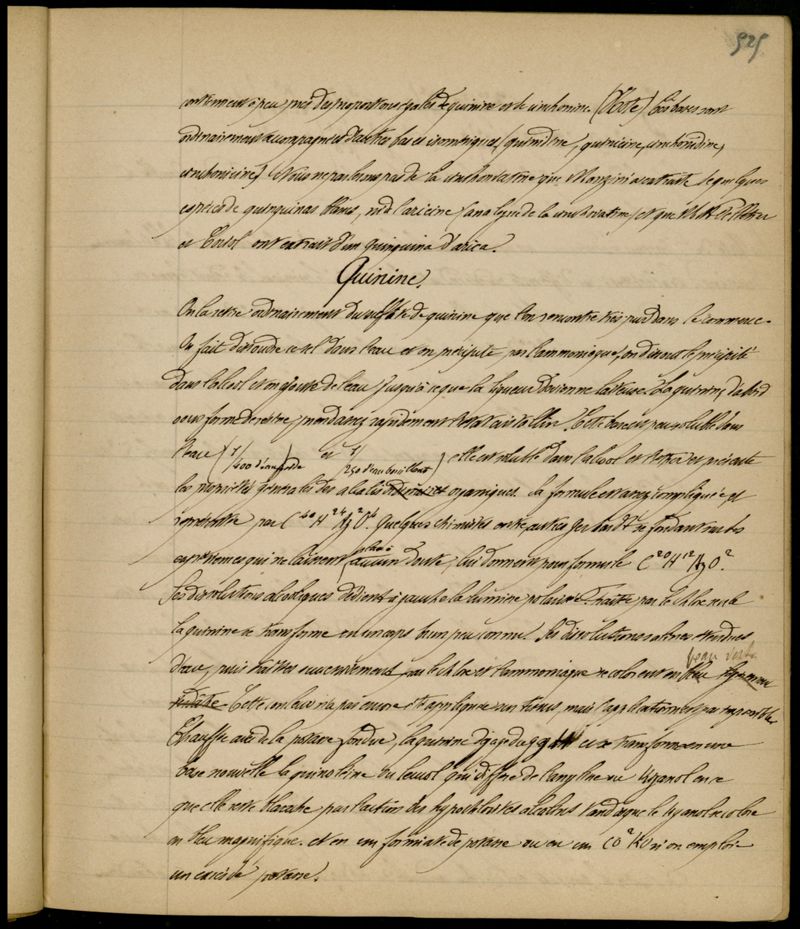 525
contiennent à peu près des proportions égales de quinine et de cinchonine. (Note) Ces bases sont
ordinairement accompagnées d'autres bases isomériques (quinidine, quinicine, cinchonidine,
cinchonicine) Nous ne parlerons pas de la cinchovatine que Manzini a extraite de quelques
espèces de quinquinas blancs, ni de l'aricine (analogue de la cinchovatine) et que M.M. Pelletier
et Coriol ont extrait d'un quinquina d'arica.
Quinine.
On la retire ordinairement du sulfate de quinine que l'on rencontre très pur dans le commerce.
On fait dissoudre ce sel dans l'eau et on précipite par l'ammoniaque, on dissout le précipité
dans l'alcool et on ajoute de l'eau jusqu'à ce que la liqueur devienne laiteuse. La quinine, d'abord
sous forme de résine, prend assez rapidement l'état cristallin. Cette base est peu soluble dans
l'eau (1/400 d'eau froide et 1/250 d'eau bouillante) elle est soluble dans l'alcool et l'éther et présente
les propriétés générales des alcalis organiques. La formule est assez compliquée et
représentée par C40 H24 Az2 O4. Quelques chimistes entre autres se fondant sur des
expériences qui ne laissent aucun doute, lui donnent pour formule C20 H12 Az O2.
Ses dissolutions alcooliques dévient à gauche la lumière polarisée. Traitée par le chlore
la quinine se transforme en un corps brun peu connu. Ses dissolutions salines étendues
beau vert.
d'eau, puis traitées successivement par le chlore et l'ammoniaque se colorent en
Cette couleur n'a pas encore été appliquée sur tissus, mais l'application n'est pas impossible
Chauffée avec de la potasse fondue, la quinine dégage du gaz H et se transforme en une
base nouvelle la quinoléine ou leucol qui diffère de l'aniline ou kyanol en ce
que elle reste blanche par l'action des hypochlorites alcalins tandis que le kyanol se colore
en bleu magnifique. et en un formiate de potasse ou en un CO2 KO si on emploie
un excès de potasse.